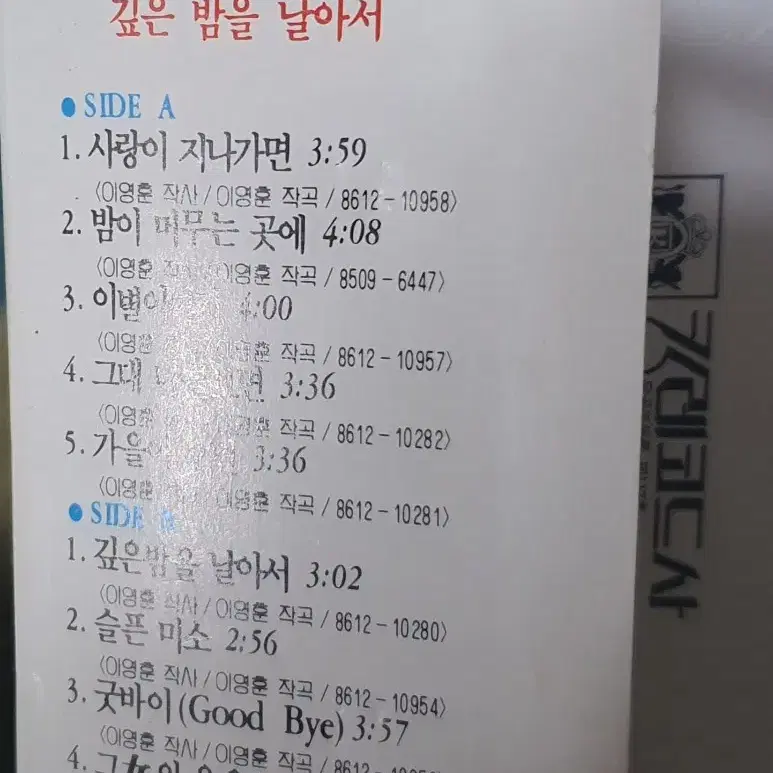 깊은 밤을 날아서
● SIDE A
1. 사랑이 지나가면 3:59
〈이영훈 작사 / 이영훈 작곡 / 8612-10958〉
2. 밤이 머무는 곳에 4:08
〈이영훈 작사 / 이영훈 작곡 / 8509-6447〉
3. 4:00
〈이영훈 이영훈 작곡 / 8612-10957〉
4. 그대 3:36
〈이영훈 작곡 / 8612-10282〉
5. 3:36
〈이영훈 이영훈 작곡 / 8612-10281〉
● SIDE B
1. 깊은밤을 날아서 3:02
〈이영훈 작사 / 이영훈 작곡 / 8612-10280〉
2. 슬픈 미소 2:56
〈이영훈 작사 / 이영훈 작곡 / 8612-10954〉
3. 굿바이 (Good Bye) 3:57
〈이영훈 작사 / 이영훈 작곡 / 8612-
4.
킹레코드사